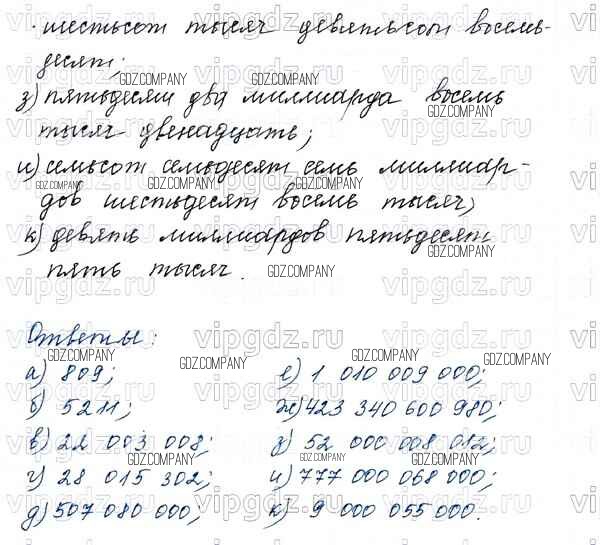 шестьсот тысяч девятьсот восемь-
десят;
з) пятьдесят два миллиарда восемь
тысяч двенадцать;
и) семьсот семьдесят семь миллиар-
дов шестьдесят восемь тысяч;
к) девять миллиардов пятьдесят
пять тысяч.
Ответы:
а) 809;
б) 5211;
в) 22 003 008;
г) 28 015 302;
д) 507 080 000;
е) 1 010 009 000;
ж) 423 340 600 980;
з) 52 000 008 012;
и) 777 000 068 000;
к) 9 000 055 000.
vipgdz.ru
GDZ.COMPANY